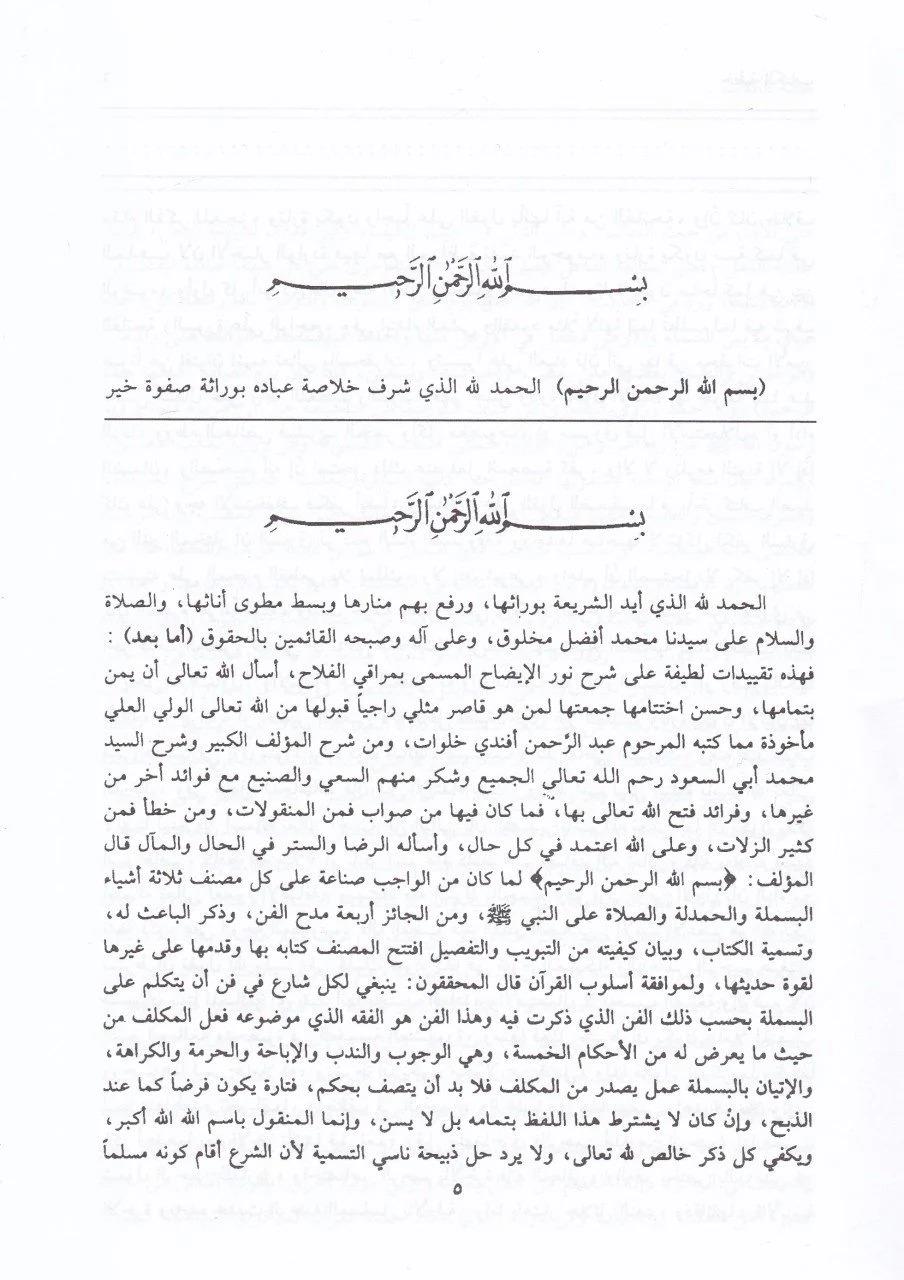 بِسْمِ اللَّهِ الرَّحْمَٰنِ الرَّحِيمِ
(بسم الله الرحمن الرحيم) الحمد لله الذي شرف خلاصة عباده بوراثة صفوة خير
بِسْمِ اللَّهِ الرَّحْمَٰنِ الرَّحِيمِ
الحمد لله الذي أيد الشريعة بوراثها، ورفع بهم منارها وبسط مطوى أناثها، والصلاة
والسلام على سيدنا محمد أفضل مخلوق، وعلى آله وصحبه القائمين بالحقوق (أما بعد) :
فهذه تقييدات لطيفة على شرح نور الإيضاح المسمى بمراقي الفلاح، أسأل الله تعالى أن يمن
بتمامها، وحسن اختتامها جمعتها لمن هو قاصر مثلي راجياً قبولها من الله تعالى الولي العلي
مأخوذة مما كتبه المرحوم عبد الرَّحمن أفندي خلوات، ومن شرح المؤلف الكبير وشرح السيد
محمد أبي السعود رحم الله تعالى الجميع وشكر منهم السعي والصنيع مع فوائد أخر من
غيرها، وفرائد فتح الله تعالى بها، فما كان فيها من صواب فمن المنقولات، ومن خطأ فمن
كثير الزلات، وعلى الله اعتمد في كل حال، وأسأله الرضا والستر في الحال والمآل قال
المؤلف: ﴿بسم الله الرحمن الرحيم﴾ لما كان من الواجب صناعة على كل مصنف ثلاثة أشياء
البسملة والحمدلة والصلاة على النبي ﷺ، ومن الجائز أربعة مدح الفن، وذكر الباعث له،
وتسمية الكتاب، وبيان كيفيته من التبويب والتفصيل افتتح المصنف كتابه بها وقدمها على غيرها
لقوة حديثها، ولموافقة أسلوب القرآن قال المحققون: ينبغي لكل شارع في فن أن يتكلم على
البسملة بحسب ذلك الفن الذي ذكرت فيه وهذا الفن هو الفقه الذي موضوعه فعل المكلف من
حيث ما يعرض له من الأحكام الخمسة، وهي الوجوب والندب والإباحة والحرمة والكراهة،
والإتيان بالبسملة عمل يصدر من المكلف فلا بد أن يتصف بحكم، فتارة يكون فرضاً كما عند
الذبح، وإنْ كان لا يشترط هذا اللفظ بتمامه بل لا يسن، وإنما المنقول باسم الله الله أكبر،
ويكفي كل ذكر خالص لله تعالى، ولا يرد حل ذبيحة ناسي التسمية لأن الشرع أقام كونه مسلماً
٥